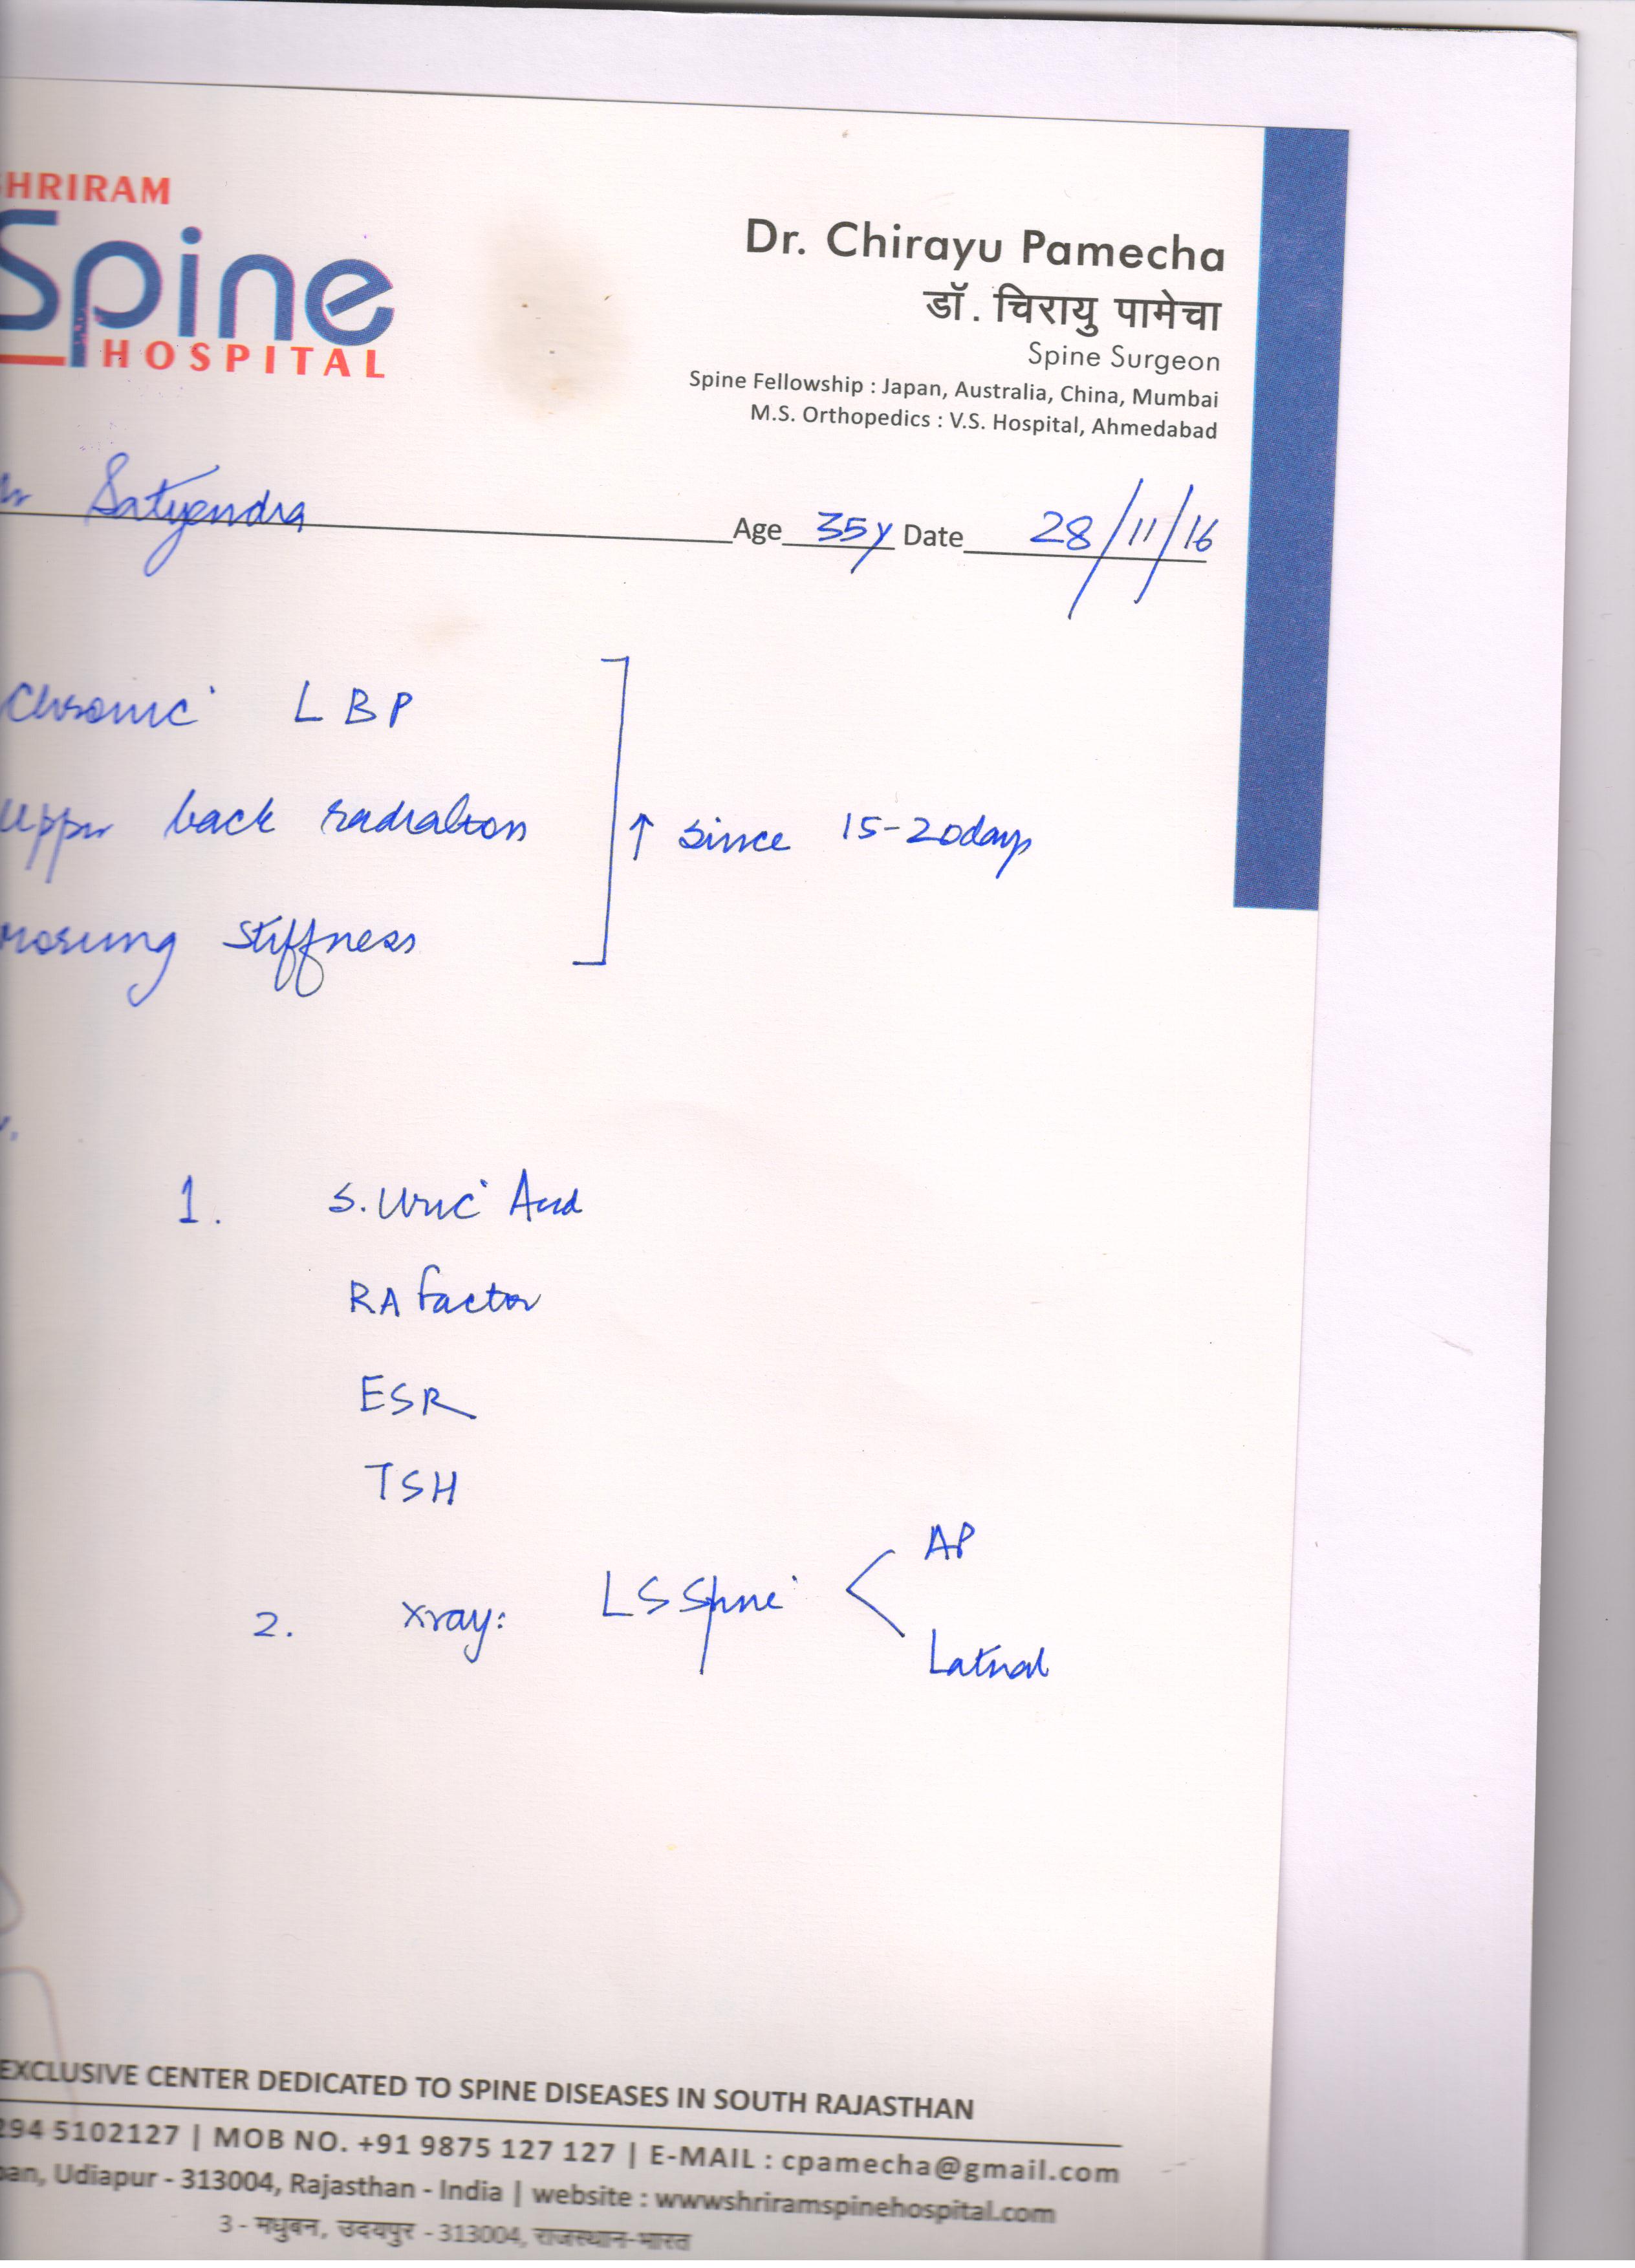 SHRIRAM
Spine
HOSPITAL
Dr. Chirayu Pamecha
डॉ. चिरायु पामेचा
Spine Surgeon
Spine Fellowship : Japan, Australia, China, Mumbai
M.S. Orthopedics : V.S. Hospital, Ahmedabad
Satyendra Age 35y Date 28/11/16
Chronic LBP
Upper back radiation
↑ since 15-20days
morning stiffness
1. S. Uric Acid
RA factor
ESR
TSH
2. Xray: LS Spine < AP
Lateral
EXCLUSIVE CENTER DEDICATED TO SPINE DISEASES IN SOUTH RAJASTHAN
294 5102127 | MOB NO. +91 9875 127 127 | E-MAIL : cpamecha@gmail.com
ban, Udiapur - 313004, Rajasthan - India | website : wwwshriramspinehospital.com
3 - मधुबन, उदयपुर - 313004, राजस्थान-भारत